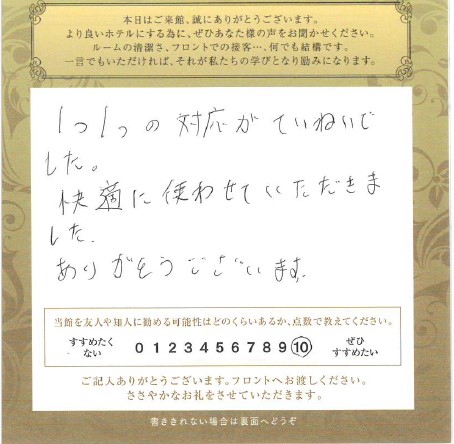 本日はご来館、誠にありがとうございます。
より良いホテルにする為に、ぜひあなた様の声をお聞かせください。
ルームの清潔さ、フロントでの接客…、何でも結構です。
一言でもいただければ、それが私たちの学びとなり励みになります。
1つ1つの対応がていねいで
した。
快適に使わせていただきま
した.
ありがとうございます.
当館を友人や知人に勧める可能性はどのくらいあるか、点数で教えてください。
すすめたく
ない
0 1 2 3 4 5 6 7 8 9 10
ぜひ
すすめたい
ご記入ありがとうございます。フロントへお渡しください。
ささやかなお礼をさせていただきます。
書ききれない場合は裏面へどうぞ